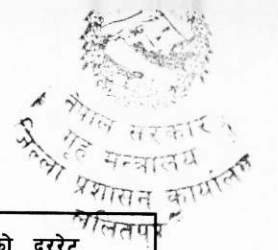 नेपाल सरकार
गृह मन्त्रालय
जिल्ला प्रशासन कार्यालय
ललितपुर
को दररेट